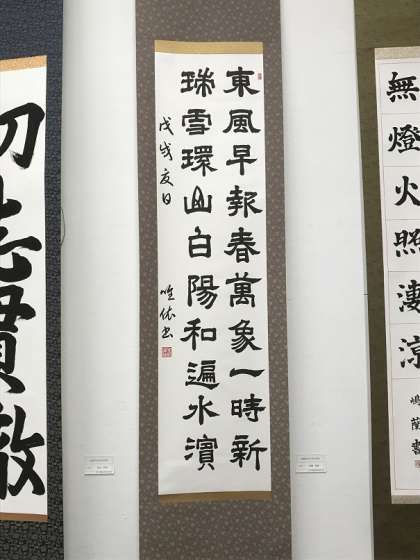 無燈火照淒涼
東風早報春萬象一時新
瑞雪環山白陽和遍水濱
戊戌夏日
初志貫徹